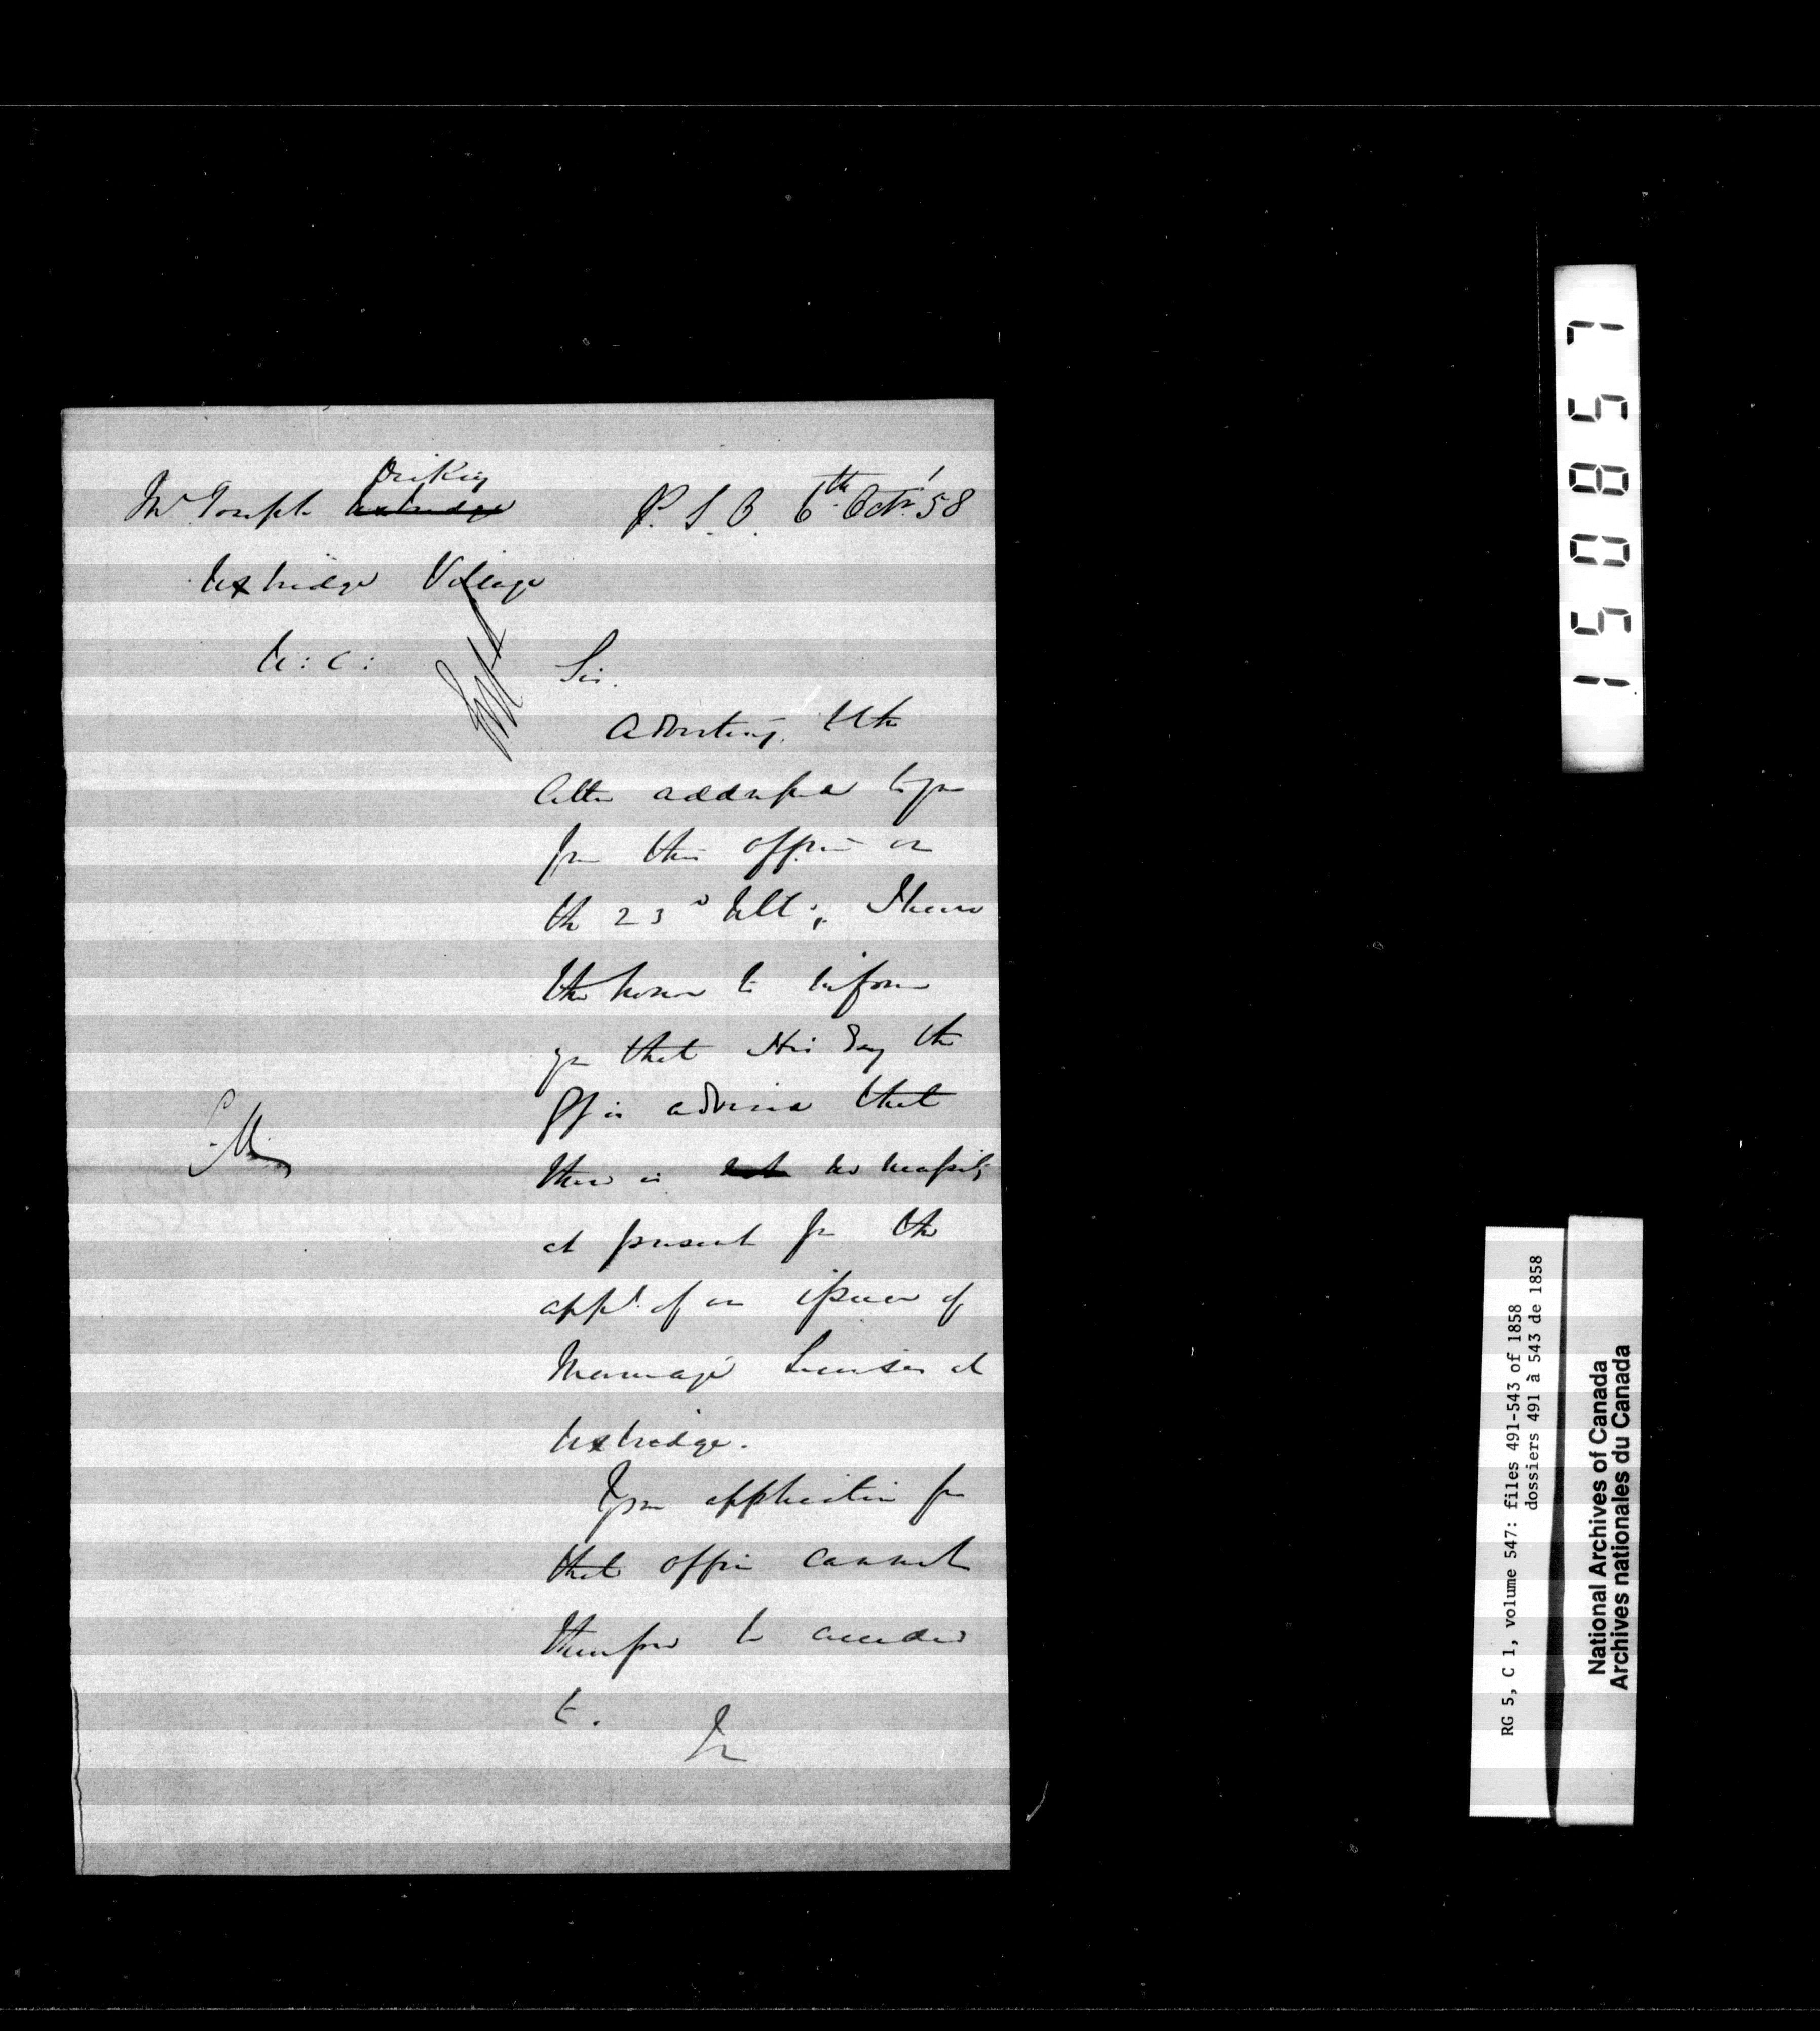 Mr Joseph ~~Uxbridge~~ Dickey
Uxbridge Village
U: C:
P. S. O. 6th Octr. '58
Sir.
Adverting to the
letter addressed to you
from this office on
the 23d Ult:, I have
the honor to inform
you that His Exy the
GG is advised that
there is ~~not~~ no necessity
at present for the
appt. of an issuer of
Marriage Licenses at
Uxbridge.
Your application for
that office cannot
therefore be acceded
to.
150857
RG 5, C 1, volume 547: files 491-543 of 1858
dossiers 491 à 543 de 1858
National Archives of Canada
Archives nationales du Canada